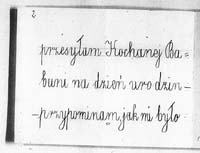 2
przesyłam Kochanej Ba=
buni na dzień urodzin-
-przypominam, jak mi było